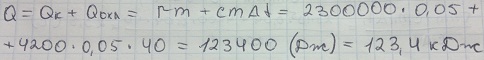 Q = Qк + Qохл = rm + cmΔt = 2300000 · 0,05 +
+ 4200 · 0,05 · 40 = 123400 (Дж) = 123,4 кДж